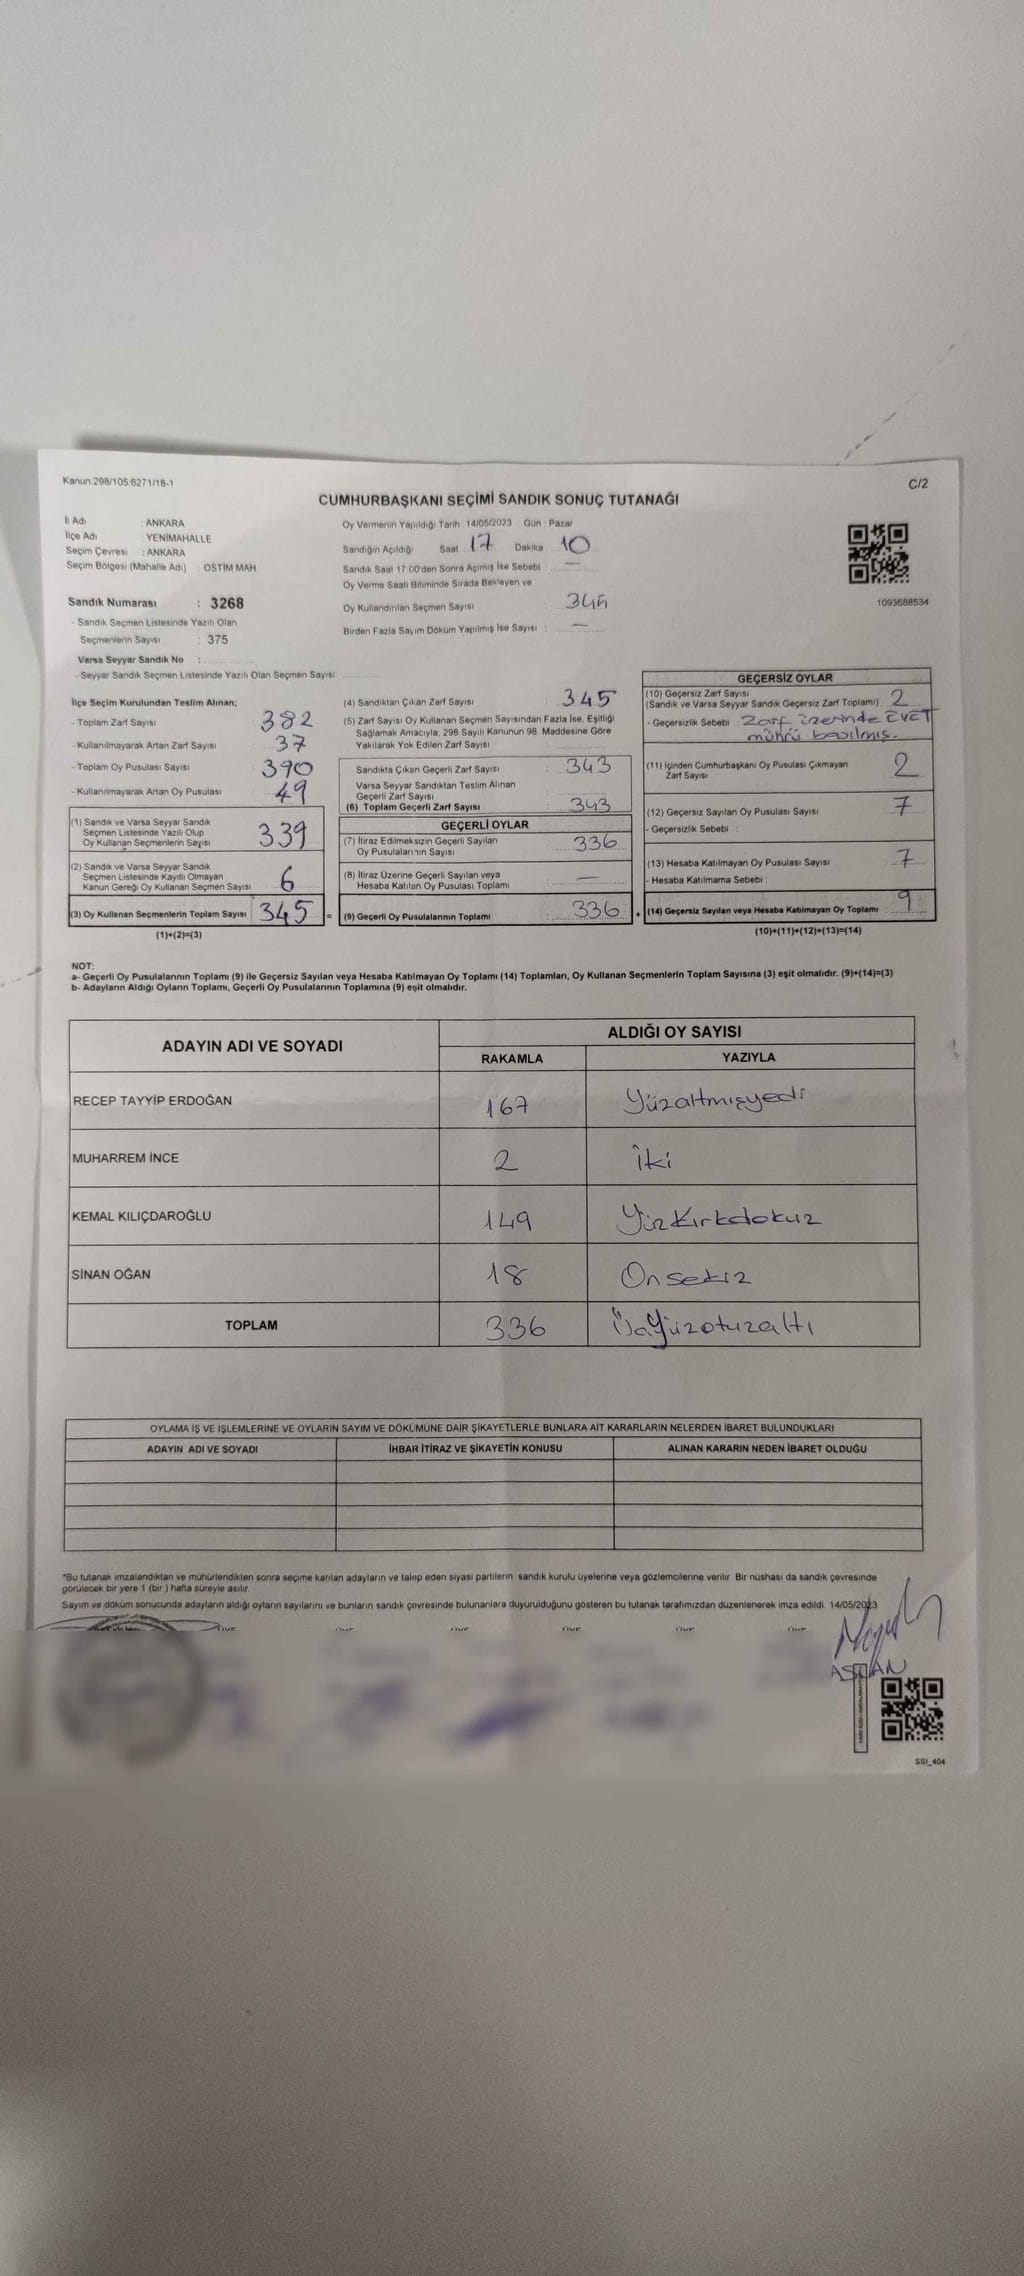 Kanun:298/105;6271/18-1
C/2
CUMHURBAŞKANI SEÇİMİ SANDIK SONUÇ TUTANAĞI
İl Adı : ANKARA
İlçe Adı : YENİMAHALLE
Seçim Çevresi : ANKARA
Seçim Bölgesi (Mahalle Adı) : OSTİM MAH
Sandık Numarası : 3268
- Sandık Seçmen Listesinde Yazılı Olan
Seçmenlerin Sayısı : 375
Varsa Seyyar Sandık No :
- Seyyar Sandık Seçmen Listesinde Yazılı Olan Seçmen Sayısı:
Oy Vermenin Yapıldığı Tarih : 14/05/2023 Gün : Pazar
Sandığın Açıldığı Saat 17 Dakika 10
Sandık Saat 17:00'den Sonra Açılmış İse Sebebi : —
Oy Verme Saati Bitiminde Sırada Bekleyen ve
Oy Kullandırılan Seçmen Sayısı : 345
Birden Fazla Sayım Döküm Yapılmış İse Sayısı : —
1093688534
İlçe Seçim Kurulundan Teslim Alınan;
- Toplam Zarf Sayısı : 382
- Kullanılmayarak Artan Zarf Sayısı : 37
- Toplam Oy Pusulası Sayısı : 390
- Kullanılmayarak Artan Oy Pusulası : 49
(1) Sandık ve Varsa Seyyar Sandık
Seçmen Listesinde Yazılı Olup
Oy Kullanan Seçmenlerin Sayısı 339
(2) Sandık ve Varsa Seyyar Sandık
Seçmen Listesinde Kayıtlı Olmayan
Kanun Gereği Oy Kullanan Seçmen Sayısı 6
(3) Oy Kullanan Seçmenlerin Toplam Sayısı 345 =
(1)+(2)=(3)
(4) Sandıktan Çıkan Zarf Sayısı : 345
(5) Zarf Sayısı Oy Kullanan Seçmen Sayısından Fazla İse, Eşitliği
Sağlamak Amacıyla, 298 Sayılı Kanunun 98. Maddesine Göre
Yakılarak Yok Edilen Zarf Sayısı :
Sandıkta Çıkan Geçerli Zarf Sayısı : 343
Varsa Seyyar Sandıktan Teslim Alınan
Geçerli Zarf Sayısı :
(6) Toplam Geçerli Zarf Sayısı : 343
GEÇERLİ OYLAR
(7) İtiraz Edilmeksizin Geçerli Sayılan
Oy Pusulalarının Sayısı : 336
(8) İtiraz Üzerine Geçerli Sayılan veya
Hesaba Katılan Oy Pusulası Toplamı : —
(9) Geçerli Oy Pusulalarının Toplamı : 336 +
GEÇERSİZ OYLAR
(10) Geçersiz Zarf Sayısı
(Sandık ve Varsa Seyyar Sandık Geçersiz Zarf Toplamı) : 2
- Geçersizlik Sebebi : Zarf üzerinde EVET
mührü basılmış.
(11) İçinden Cumhurbaşkanı Oy Pusulası Çıkmayan
Zarf Sayısı : 2
(12) Geçersiz Sayılan Oy Pusulası Sayısı : 7
- Geçersizlik Sebebi :
(13) Hesaba Katılmayan Oy Pusulası Sayısı : 7
- Hesaba Katılmama Sebebi :
(14) Geçersiz Sayılan veya Hesaba Katılmayan Oy Toplamı : 9
(10)+(11)+(12)+(13)=(14)
NOT:
a- Geçerli Oy Pusulalarının Toplamı (9) ile Geçersiz Sayılan veya Hesaba Katılmayan Oy Toplamı (14) Toplamları, Oy Kullanan Seçmenlerin Toplam Sayısına (3) eşit olmalıdır. (9)+(14)=(3)
b- Adayların Aldığı Oyların Toplamı, Geçerli Oy Pusulalarının Toplamına (9) eşit olmalıdır.
ADAYIN ADI VE SOYADI
ALDIĞI OY SAYISI
RAKAMLA YAZIYLA
RECEP TAYYİP ERDOĞAN 167 Yüzaltmışyedi
MUHARREM İNCE 2 İki
KEMAL KILIÇDAROĞLU 149 Yüzkırkdokuz
SİNAN OĞAN 18 Onsekiz
TOPLAM 336 Üçyüzotuzaltı
OYLAMA İŞ VE İŞLEMLERİNE VE OYLARIN SAYIM VE DÖKÜMÜNE DAİR ŞİKAYETLERLE BUNLARA AİT KARARLARIN NELERDEN İBARET BULUNDUKLARI
ADAYIN ADI VE SOYADI İHBAR İTİRAZ VE ŞİKAYETİN KONUSU ALINAN KARARIN NEDEN İBARET OLDUĞU
*Bu tutanak imzalandıktan ve mühürlendikten sonra seçime katılan adayların ve talep eden siyasi partilerin sandık kurulu üyelerine veya gözlemcilerine verilir. Bir nüshası da sandık çevresinde
görülecek bir yere 1 (bir ) hafta süreyle asılır.
Sayım ve döküm sonucunda adayların aldığı oyların sayılarını ve bunların sandık çevresinde bulunanlara duyurulduğunu gösteren bu tutanak tarafımızdan düzenlenerek imza edildi. 14/05/2023
ASLAN
SSI_404